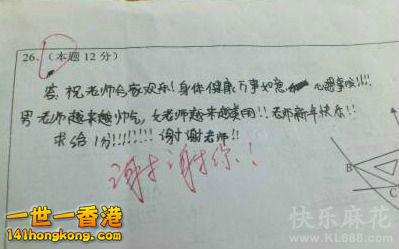 26.（本题12分）
答: 祝老师合家欢乐!身体健康万事如意 心想事成!!!!
男老师越来越帅气，女老师越来越美丽!!老师新年快乐!!
求给1分!!!!!!!!谢谢老师!!
谢谢你!!
B
C
一世一香港
141hongkong.com
快乐麻花
www.KL688.com